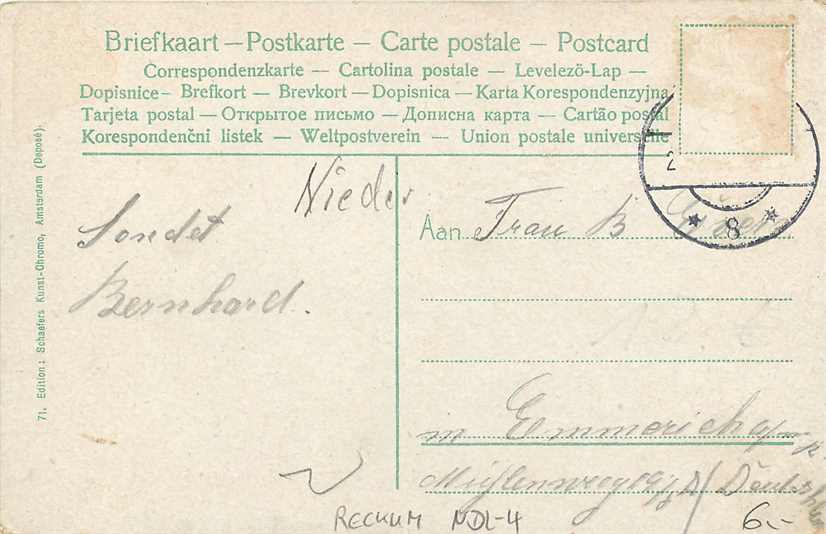 Briefkaart — Postkarte — Carte postale — Postcard
Correspondenzkarte — Cartolina postale — Levelezö-Lap —
Dopisnice — Brefkort — Brevkort — Dopisnica — Karta Korespondenzyjna
Tarjeta postal — Открытое письмо — Дописна карта — Cartão postal
Korespondenční listek — Weltpostverein — Union postale universelle
71. Edition: Schaefers Kunst-Chromo, Amsterdam (Deposé).
Nieder
Sondet
Bernhard.
Aan Frau B
2
8
Emmerich a/
RECKUM NDL-4
6.-